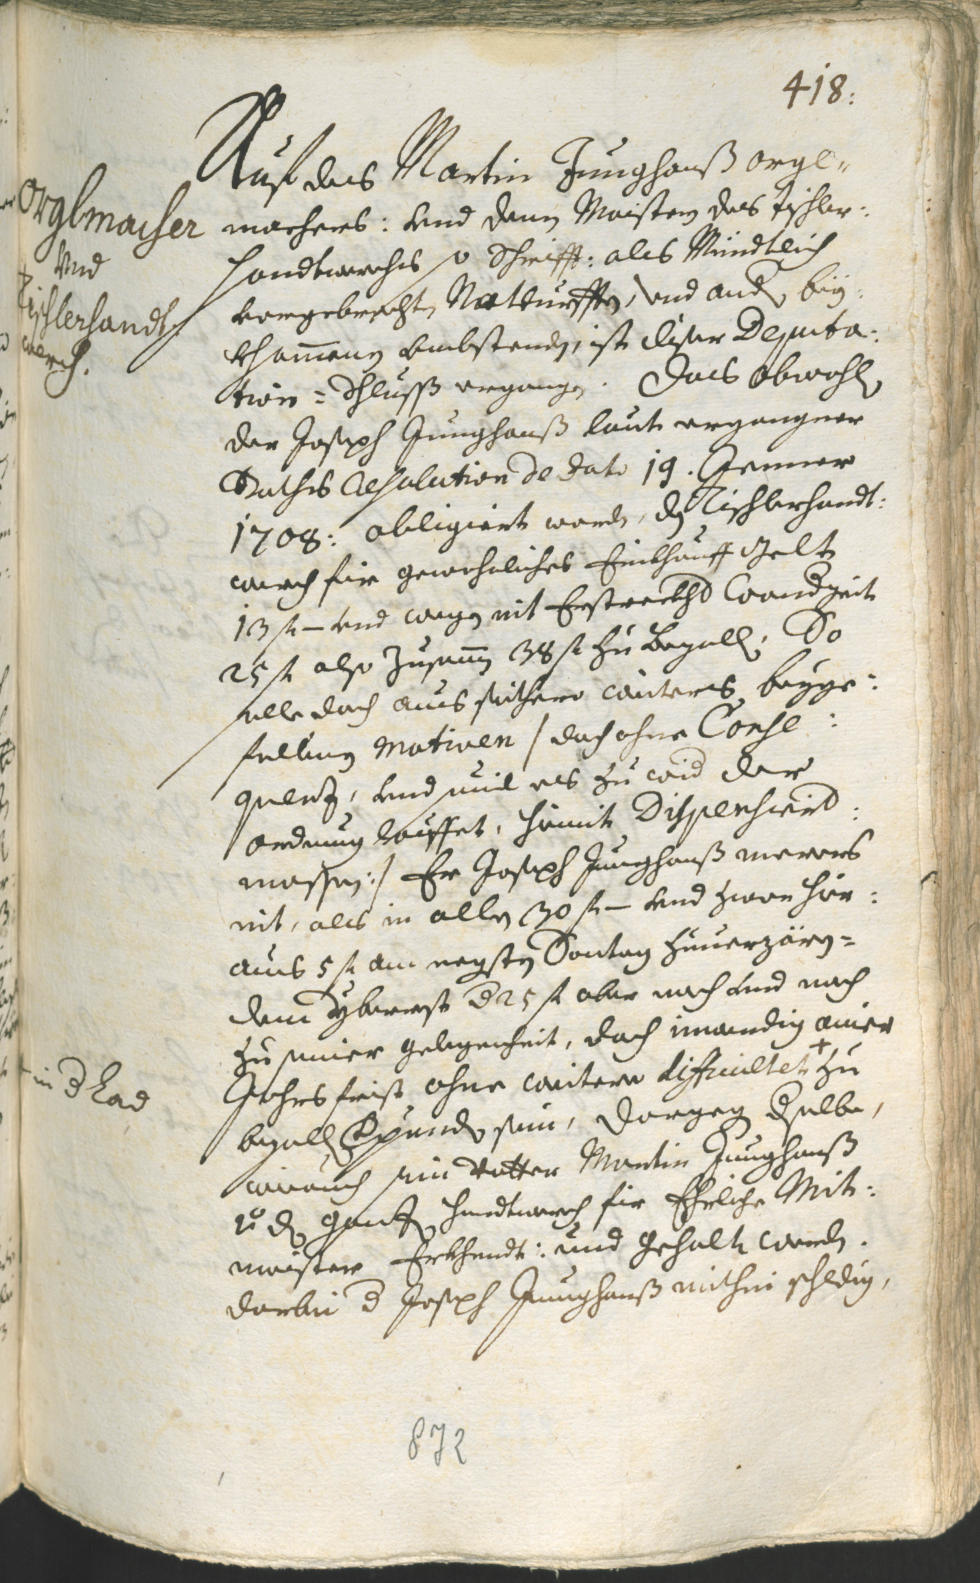 418:
Orglmacher
Vnd
Tischlerhandt
werch.
Auf des Martin Junghanß orgl=
machers: vnd denn Maistern des Tischler:
handtwerchs so Schrifft: als Mündtlich
vorgebrachte Notturfften, vnd and. bey:
khommene vmbstendt, ist diser Deputa:
tion = Schlusß ergangen. Das obwohl
der Joseph Junghanß laut ergangner
Rathes Resolution de dato 19. Jenner
1708: obligiert worden, dem Tischlerhandt:
werch für gewohnliches Einkhauff Gelt
13 f – vnd wegen nit Erstreckhter Wanderzeit
25 f also Zusammen 38 f zu bezallen; So
solle doch aus seithero weiters beyge:
fallenen Motiven / doch ohne Conse:
quenz, vnd weil es zu wid der
ordnung lauffet, hiemit Dispensierd:
massen:/ Er Joseph Junghanß merers
nit, als in allem 30 f – vnd zwar hier:
aus 5 f am negsten Sontag
dem Yberrest d 25 f aber nach vnd nach
zu seiner gelegenheit, doch inwendig ainer
Jahrs frist ohne weitere difficultet + zu
bezallen schuldig sein, dargegen dselbe,
wie auch sein Vatter Martin Junghanß
v. dem ganzen handtwerch für Ehrliche Mit:
maister Erkhendt: vnd gehalten werden.
darbei d Joseph Junghanß mithin schuldig,
+ in d Lad
872